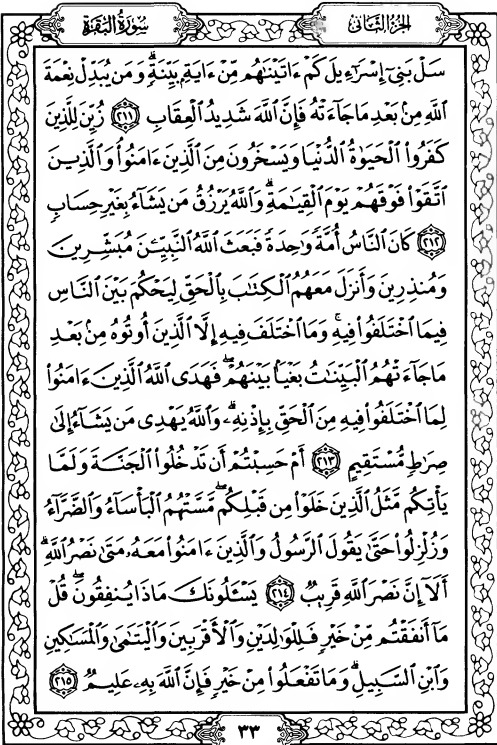 سُورَةُ البَقَرَةِ
الجُزءُ الثَّانِي
سَلْ بَنِىٓ إِسْرَٰٓءِيلَ كَمْ ءَاتَيْنَٰهُم مِّنْ ءَايَةِۭ بَيِّنَةٍۗ وَمَن يُبَدِّلْ نِعْمَةَ
ٱللَّهِ مِنۢ بَعْدِ مَا جَآءَتْهُ فَإِنَّ ٱللَّهَ شَدِيدُ ٱلْعِقَابِ ٢١١ زُيِّنَ لِلَّذِينَ
كَفَرُوا۟ ٱلْحَيَوٰةُ ٱلدُّنْيَا وَيَسْخَرُونَ مِنَ ٱلَّذِينَ ءَامَنُوا۟ۘ وَٱلَّذِينَ
ٱتَّقَوْا۟ فَوْقَهُمْ يَوْمَ ٱلْقِيَٰمَةِۗ وَٱللَّهُ يَرْزُقُ مَن يَشَآءُ بِغَيْرِ حِسَابٍ
٢١٢ كَانَ ٱلنَّاسُ أُمَّةً وَٰحِدَةً فَبَعَثَ ٱللَّهُ ٱلنَّبِيِّـۧنَ مُبَشِّرِينَ
وَمُنذِرِينَ وَأَنزَلَ مَعَهُمُ ٱلْكِتَٰبَ بِٱلْحَقِّ لِيَحْكُمَ بَيْنَ ٱلنَّاسِ
فِيمَا ٱخْتَلَفُوا۟ فِيهِۚ وَمَا ٱخْتَلَفَ فِيهِ إِلَّا ٱلَّذِينَ أُوتُوهُ مِنۢ بَعْدِ
مَا جَآءَتْهُمُ ٱلْبَيِّنَٰتُ بَغْيًۢا بَيْنَهُمْۖ فَهَدَى ٱللَّهُ ٱلَّذِينَ ءَامَنُوا۟
لِمَا ٱخْتَلَفُوا۟ فِيهِ مِنَ ٱلْحَقِّ بِإِذْنِهِۦۗ وَٱللَّهُ يَهْدِى مَن يَشَآءُ إِلَىٰ
صِرَٰطٍ مُّسْتَقِيمٍ ٢١٣ أَمْ حَسِبْتُمْ أَن تَدْخُلُوا۟ ٱلْجَنَّةَ وَلَمَّا
يَأْتِكُم مَّثَلُ ٱلَّذِينَ خَلَوْا۟ مِن قَبْلِكُمۖ مَّسَّتْهُمُ ٱلْبَأْسَآءُ وَٱلضَّرَّآءُ
وَزُلْزِلُوا۟ حَتَّىٰ يَقُولَ ٱلرَّسُولُ وَٱلَّذِينَ ءَامَنُوا۟ مَعَهُۥ مَتَىٰ نَصْرُ ٱللَّهِۗ
أَلَآ إِنَّ نَصْرَ ٱللَّهِ قَرِيبٌ ٢١٤ يَسْـَٔلُونَكَ مَاذَا يُنفِقُونَۖ قُلْ
مَآ أَنفَقْتُم مِّنْ خَيْرٍ فَلِلْوَٰلِدَيْنِ وَٱلْأَقْرَبِينَ وَٱلْيَتَٰمَىٰ وَٱلْمَسَٰكِينِ
وَٱبْنِ ٱلسَّبِيلِۗ وَمَا تَفْعَلُوا۟ مِنْ خَيْرٍ فَإِنَّ ٱللَّهَ بِهِۦ عَلِيمٌ ٢١٥
٣٣